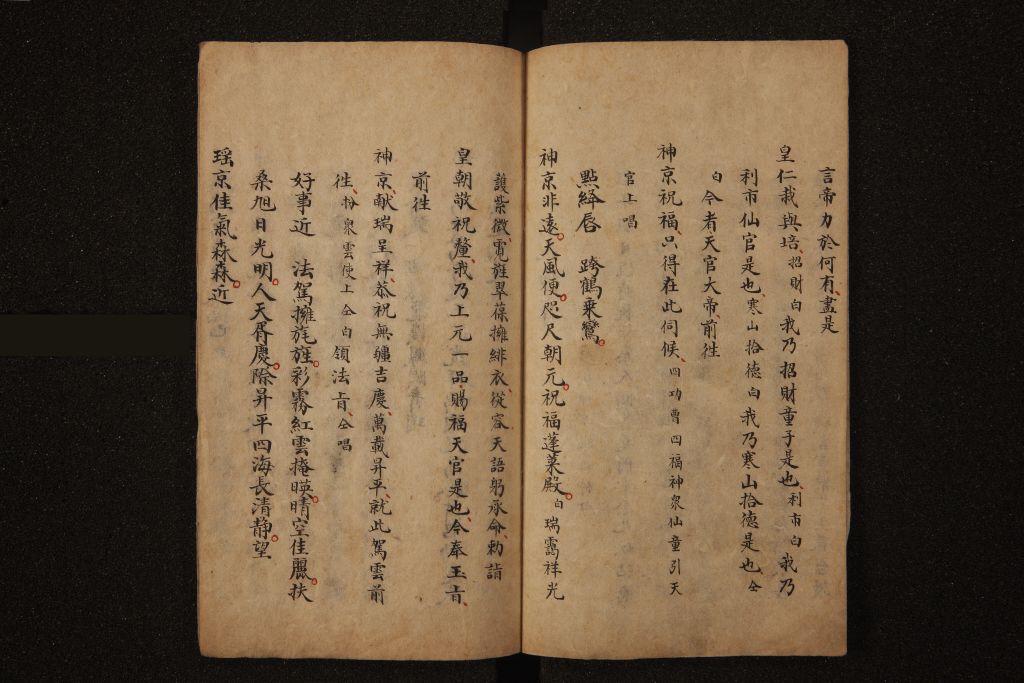 言帝力於何有盡是
皇仁栽與培招財白我乃招財童子是也利市白我乃
利市仙官是也寒山拾德白我乃寒山拾德是也仝
白今者天官大帝前徃
神京祝福只得在此伺候四功曹四福神衆仙童引天
官上唱
點絳唇 跨鶴乘鸞
神京非遠天風便咫尺朝元祝福蓬萊殿白瑞靄祥光
護紫微霓旌翠葆擁緋衣從容天語躬承命勅詣
皇朝敬祝釐我乃上元一品賜福天官是也今奉玉旨
前徃
神京献瑞呈祥恭祝無疆吉慶萬載昇平就此駕雲前
徃扮衆雲使上仝白領法旨仝唱
好事近 法駕擁旄旌彩霧紅雲掩暎晴空佳麗扶
桑旭日光明人天胥慶際昇平四海長清静望
瑶京佳氣森森近